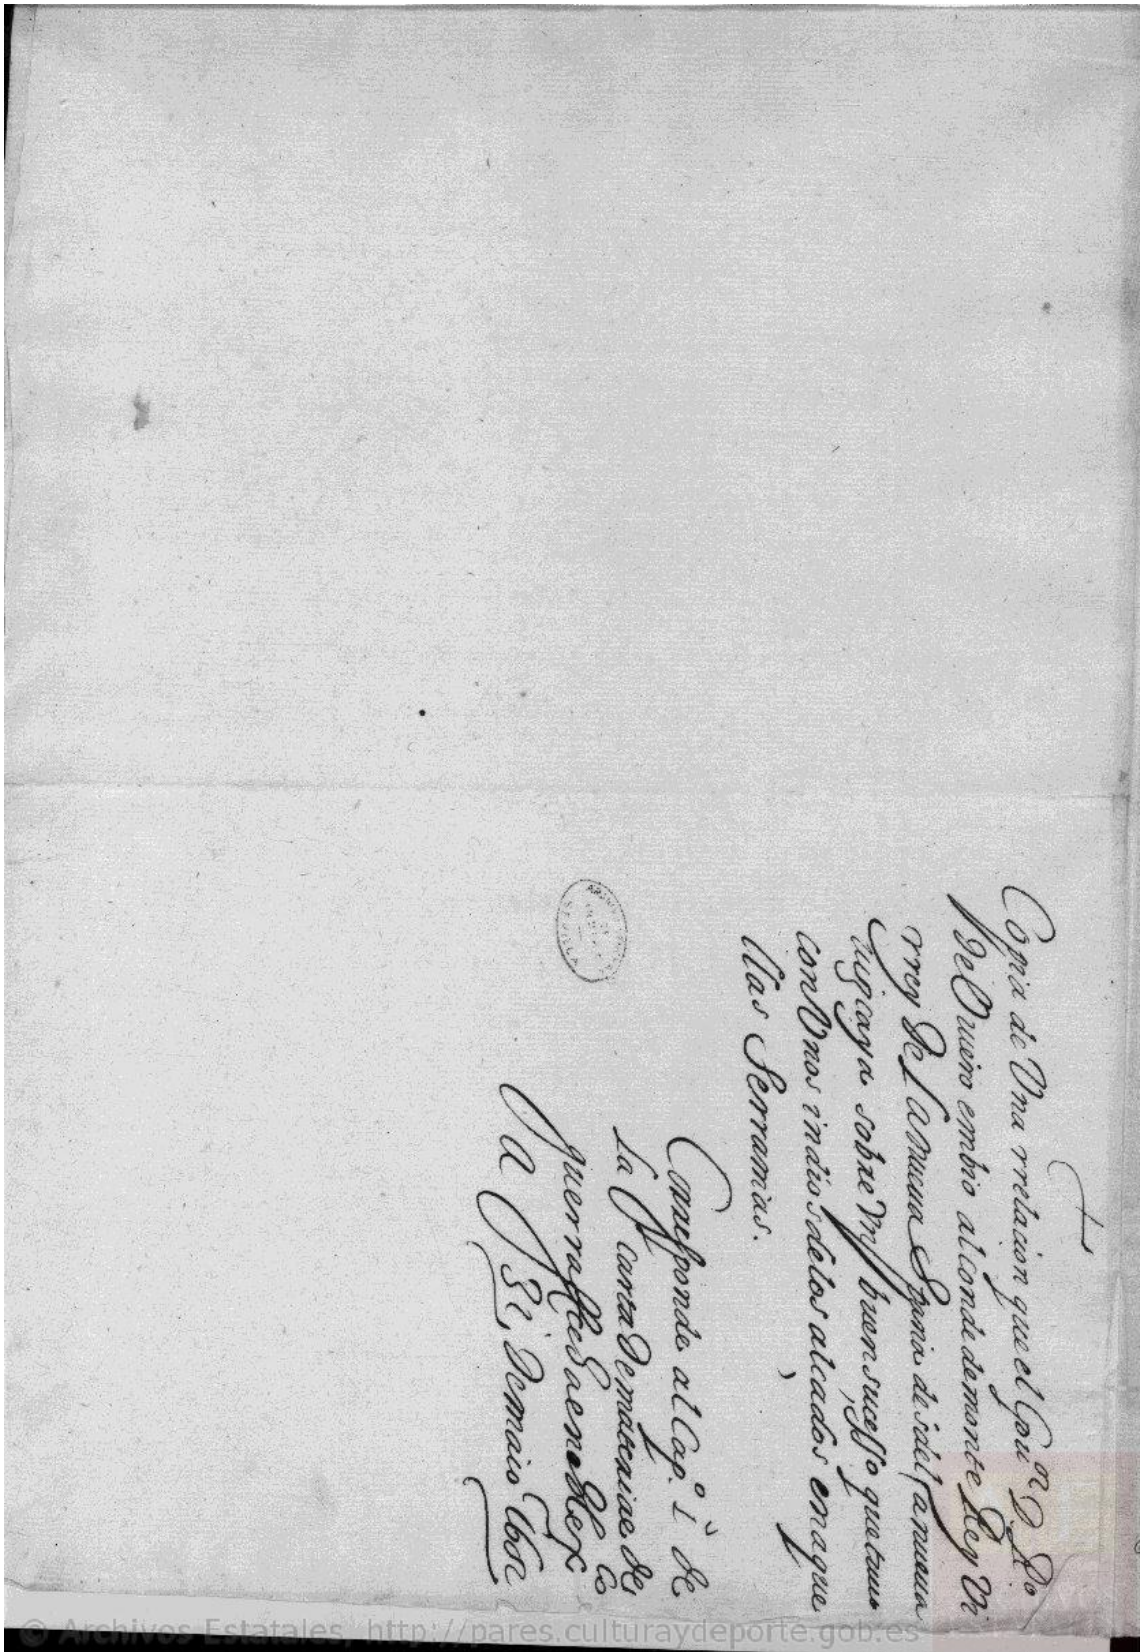 +
Copia de Una rrelacion que el Gou.or D. R.o
de Oñueiro embio al conde de monte Rey Vi
rrey De la nueua Spaña desde la nueua
uizcaya sobre Un buen sucesso que tuuo
con Unos indios de los alçados en aque
llas Serranias.
Corresponde al Cap.o 1 de
la carta De materias de
guerra
a 31 De maio 160
SEVILLA
© Archivos Estatales, http://pares.culturaydeporte.gob.es